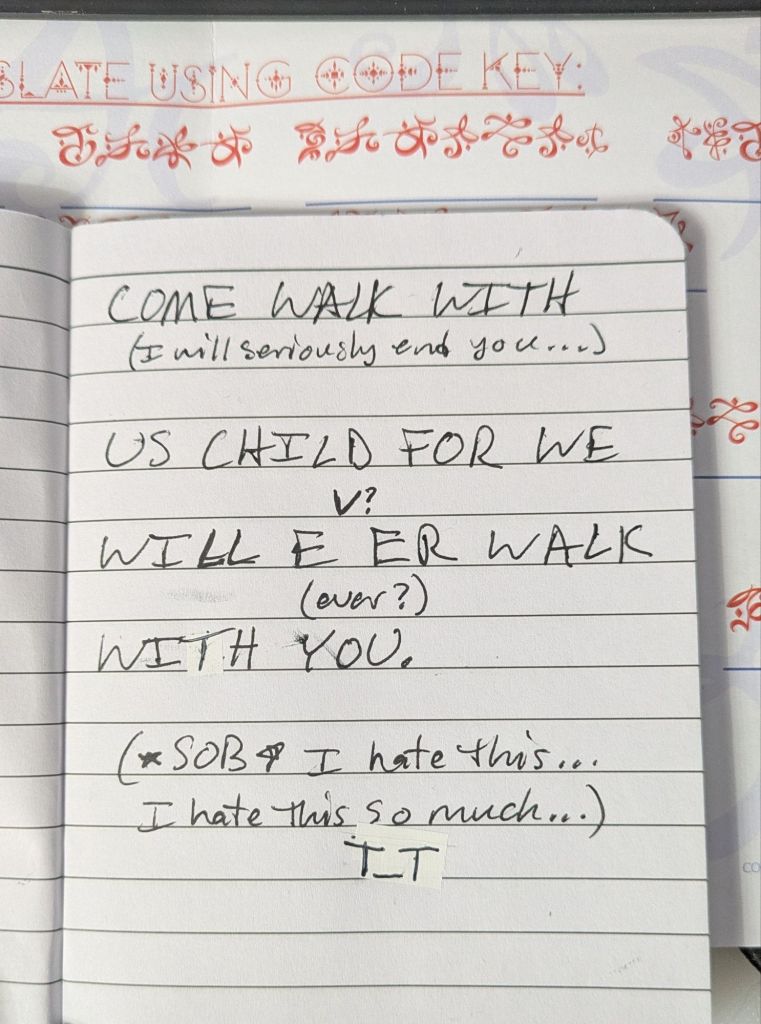 SLATE USING CODE KEY:
COME WALK WITH
(I will seriously end you...)
US CHILD FOR WE
V?
WILL E ER WALK
(ever?)
WITH YOU.
(*SOB* I hate this...
I hate this so much...)
T_T
CO